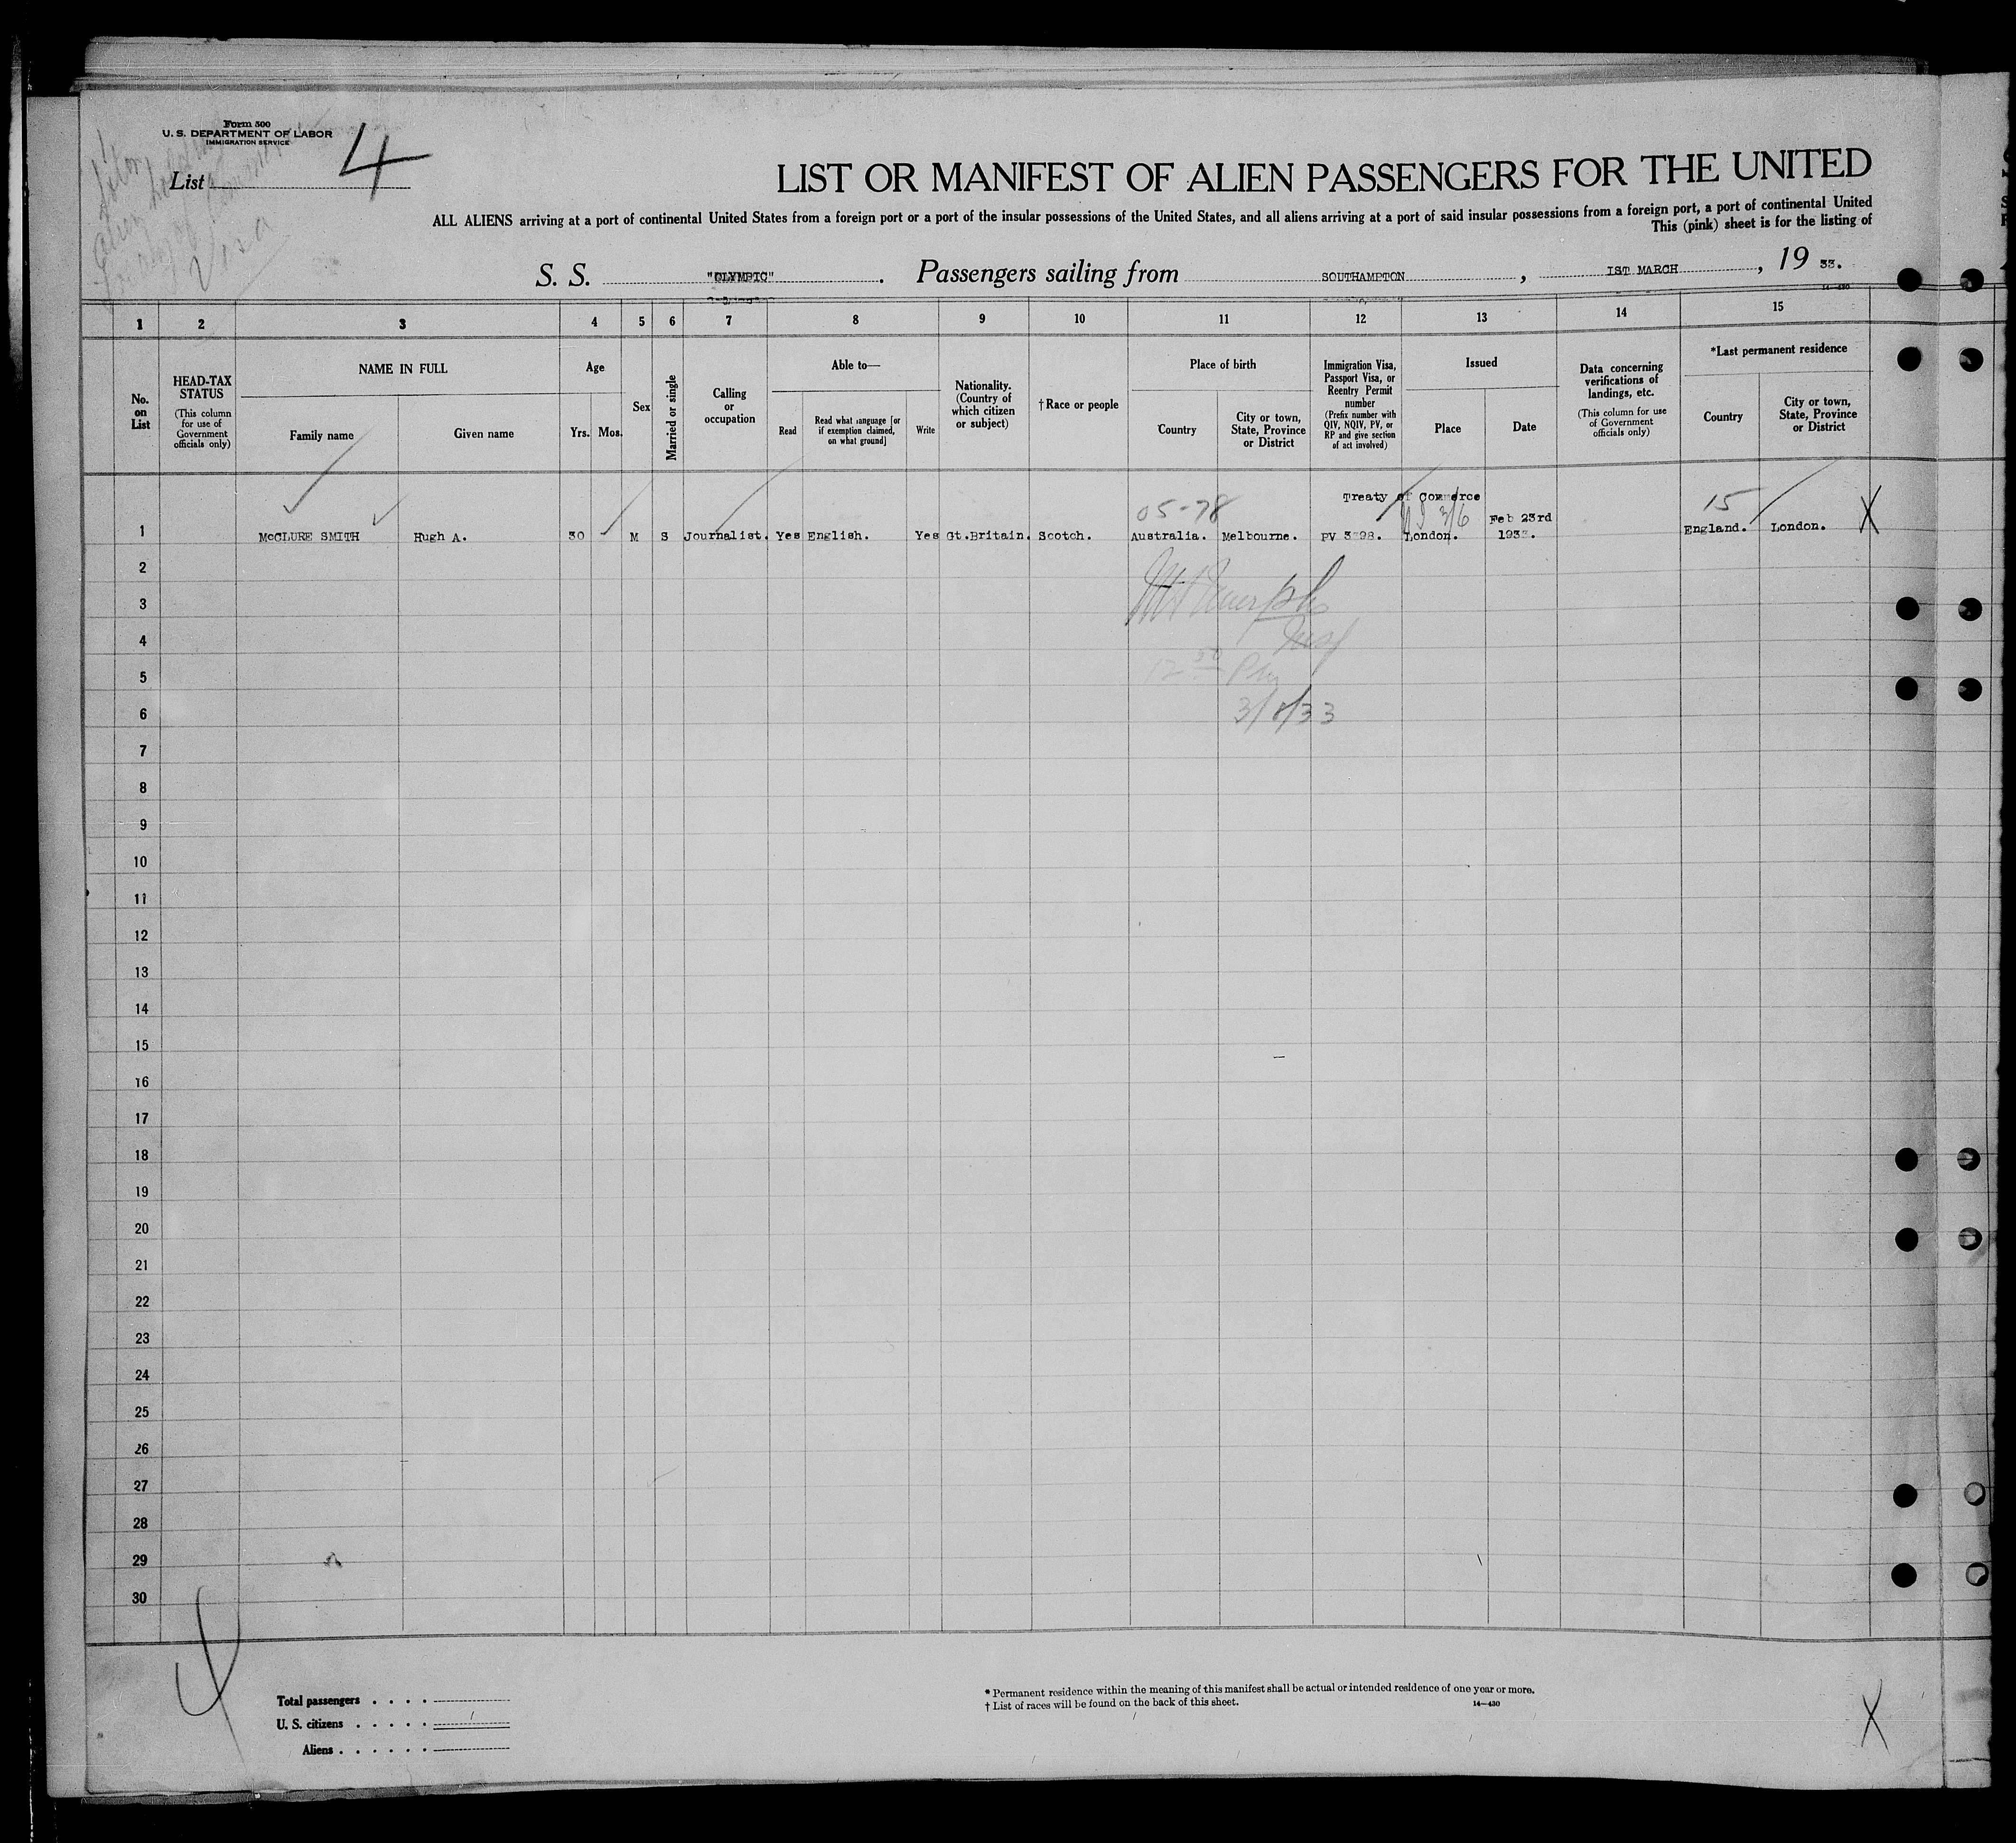 Form 500
U. S. DEPARTMENT OF LABOR
IMMIGRATION SERVICE
List 4
Visa
LIST OR MANIFEST OF ALIEN PASSENGERS FOR THE UNITED
ALL ALIENS arriving at a port of continental United States from a foreign port or a port of the insular possessions of the United States, and all aliens arriving at a port of said insular possessions from a foreign port, a port of continental United
This (pink) sheet is for the listing of
S. S. "OLYMPIC". Passengers sailing from SOUTHAMPTON, 1ST MARCH, 19 33.
14—430
1 2 3 4 5 6 7 8 9 10 11 12 13 14 15
No. on List
HEAD-TAX STATUS
(This column for use of Government officials only)
NAME IN FULL
Family name
Given name
Age
Yrs. Mos.
Sex
Married or single
Calling or occupation
Able to—
Read
Read what language [or if exemption claimed, on what ground]
Write
Nationality. (Country of which citizen or subject)
†Race or people
Place of birth
Country
City or town, State, Province or District
Immigration Visa, Passport Visa, or Reentry Permit number
(Prefix number with QIV, NQIV, PV, or RP and give section of act involved)
Issued
Place
Date
Data concerning verifications of landings, etc.
(This column for use of Government officials only)
*Last permanent residence
Country
City or town, State, Province or District
Treaty of Commerce
05-78
3/6
15
Feb 23rd
1 McCLURE SMITH Hugh A. 30 M S Journalist. Yes English. Yes Gt.Britain. Scotch. Australia. Melbourne. PV 3 98. London. 1933. England. London. X
2
3
Insp
4
12 50 Pm
5
3/8/33
6
7
8
9
10
11
12
13
14
15
16
17
18
19
20
21
22
23
24
25
26
27
28
29
30
Total passengers . . . .
U. S. citizens . . . . .
Aliens . . . . . .
* Permanent residence within the meaning of this manifest shall be actual or intended residence of one year or more.
† List of races will be found on the back of this sheet.
14—430
X